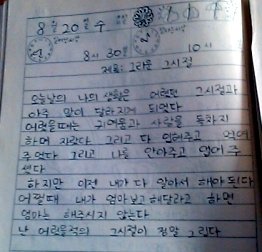 8월 20일 수
8시 30분 10시
제목: 그리운 그시절
오늘날의 나의 생활은 어렸던 그시절과
아주 많이 달라지게 되었다
어렸을때는 귀여움과 사랑을 독차지
하며 자랐다 그리고 다 입혀주고 먹여
주었다 그리고 나를 안아주고 업어주
셨다
하지만 이젠 내가 다 알아서 해야된다
어쩔때 내가 엄마보고 해달라고 하면
엄마는 해주시지 않는다
난 어렸을적의 그시절이 정말 그립다